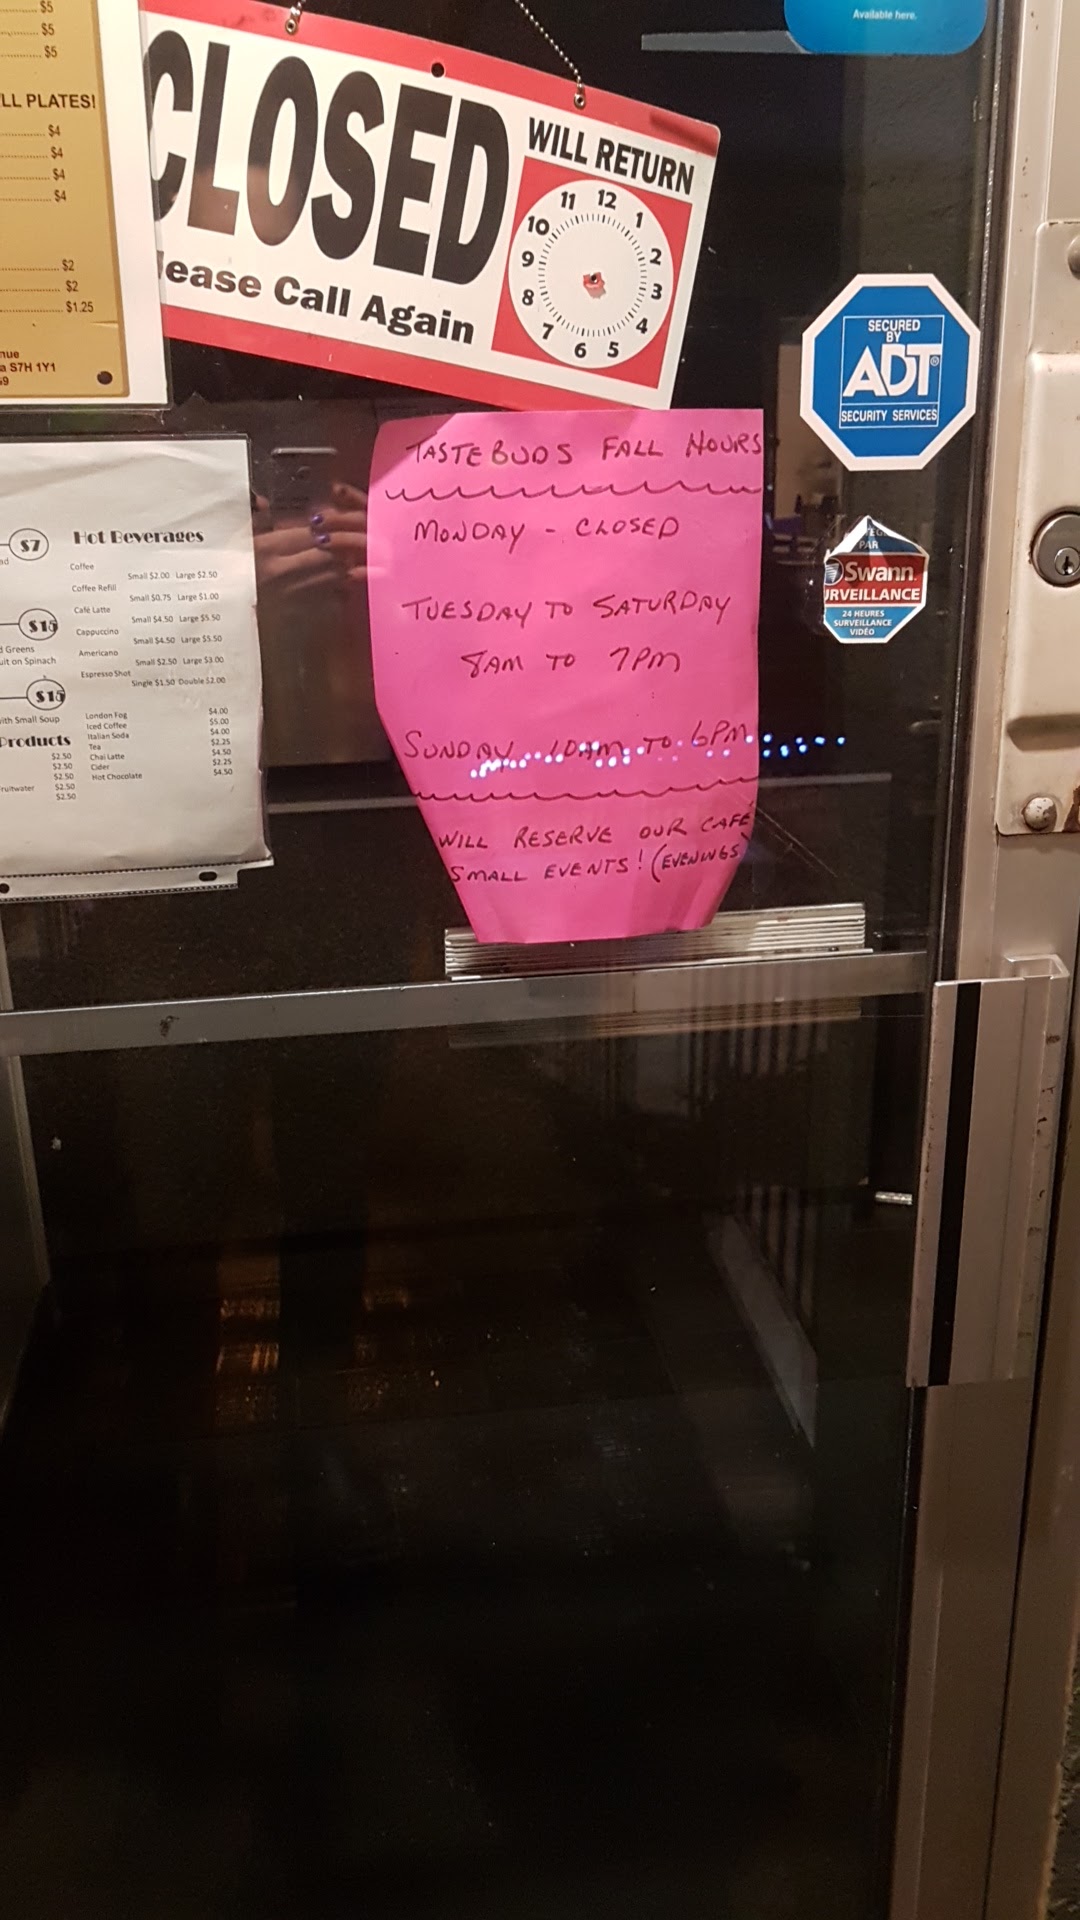 $5
$5
$5
LL PLATES!
$4
$4
$4
$4
$2
$2
$1.25
S7H 1Y1
CLOSED
ease Call Again
WILL RETURN
12
1
2
3
4
5
6
7
8
9
10
11
Available here.
SECURED
BY
ADT®
SECURITY SERVICES
PAR
Swann
URVEILLANCE
24 HEURES
SURVEILLANCE
VIDÉO
TASTEBUDS FALL HOURS
MONDAY - CLOSED
TUESDAY TO SATURDAY
8AM TO 7PM
SUNDAY 10AM TO 6PM
WILL RESERVE OUR CAFÉ
SMALL EVENTS! (EVENINGS)
$7
$15
Greens
uit on Spinach
$15
with Small Soup
Products
$2.50
$2.50
$2.50
ruitwater $2.50
$2.50
Hot Beverages
Coffee
Small $2.00 Large $2.50
Coffee Refill
Small $0.75 Large $1.00
Café Latte
Small $4.50 Large $5.50
Cappuccino
Small $4.50 Large $5.50
Americano
Small $2.50 Large $3.00
Espresso Shot
Single $1.50 Double $2.00
London Fog $4.00
Iced Coffee $5.00
Italian Soda $4.00
Tea $2.25
Chai Latte $4.50
Cider $2.25
Hot Chocolate $4.50